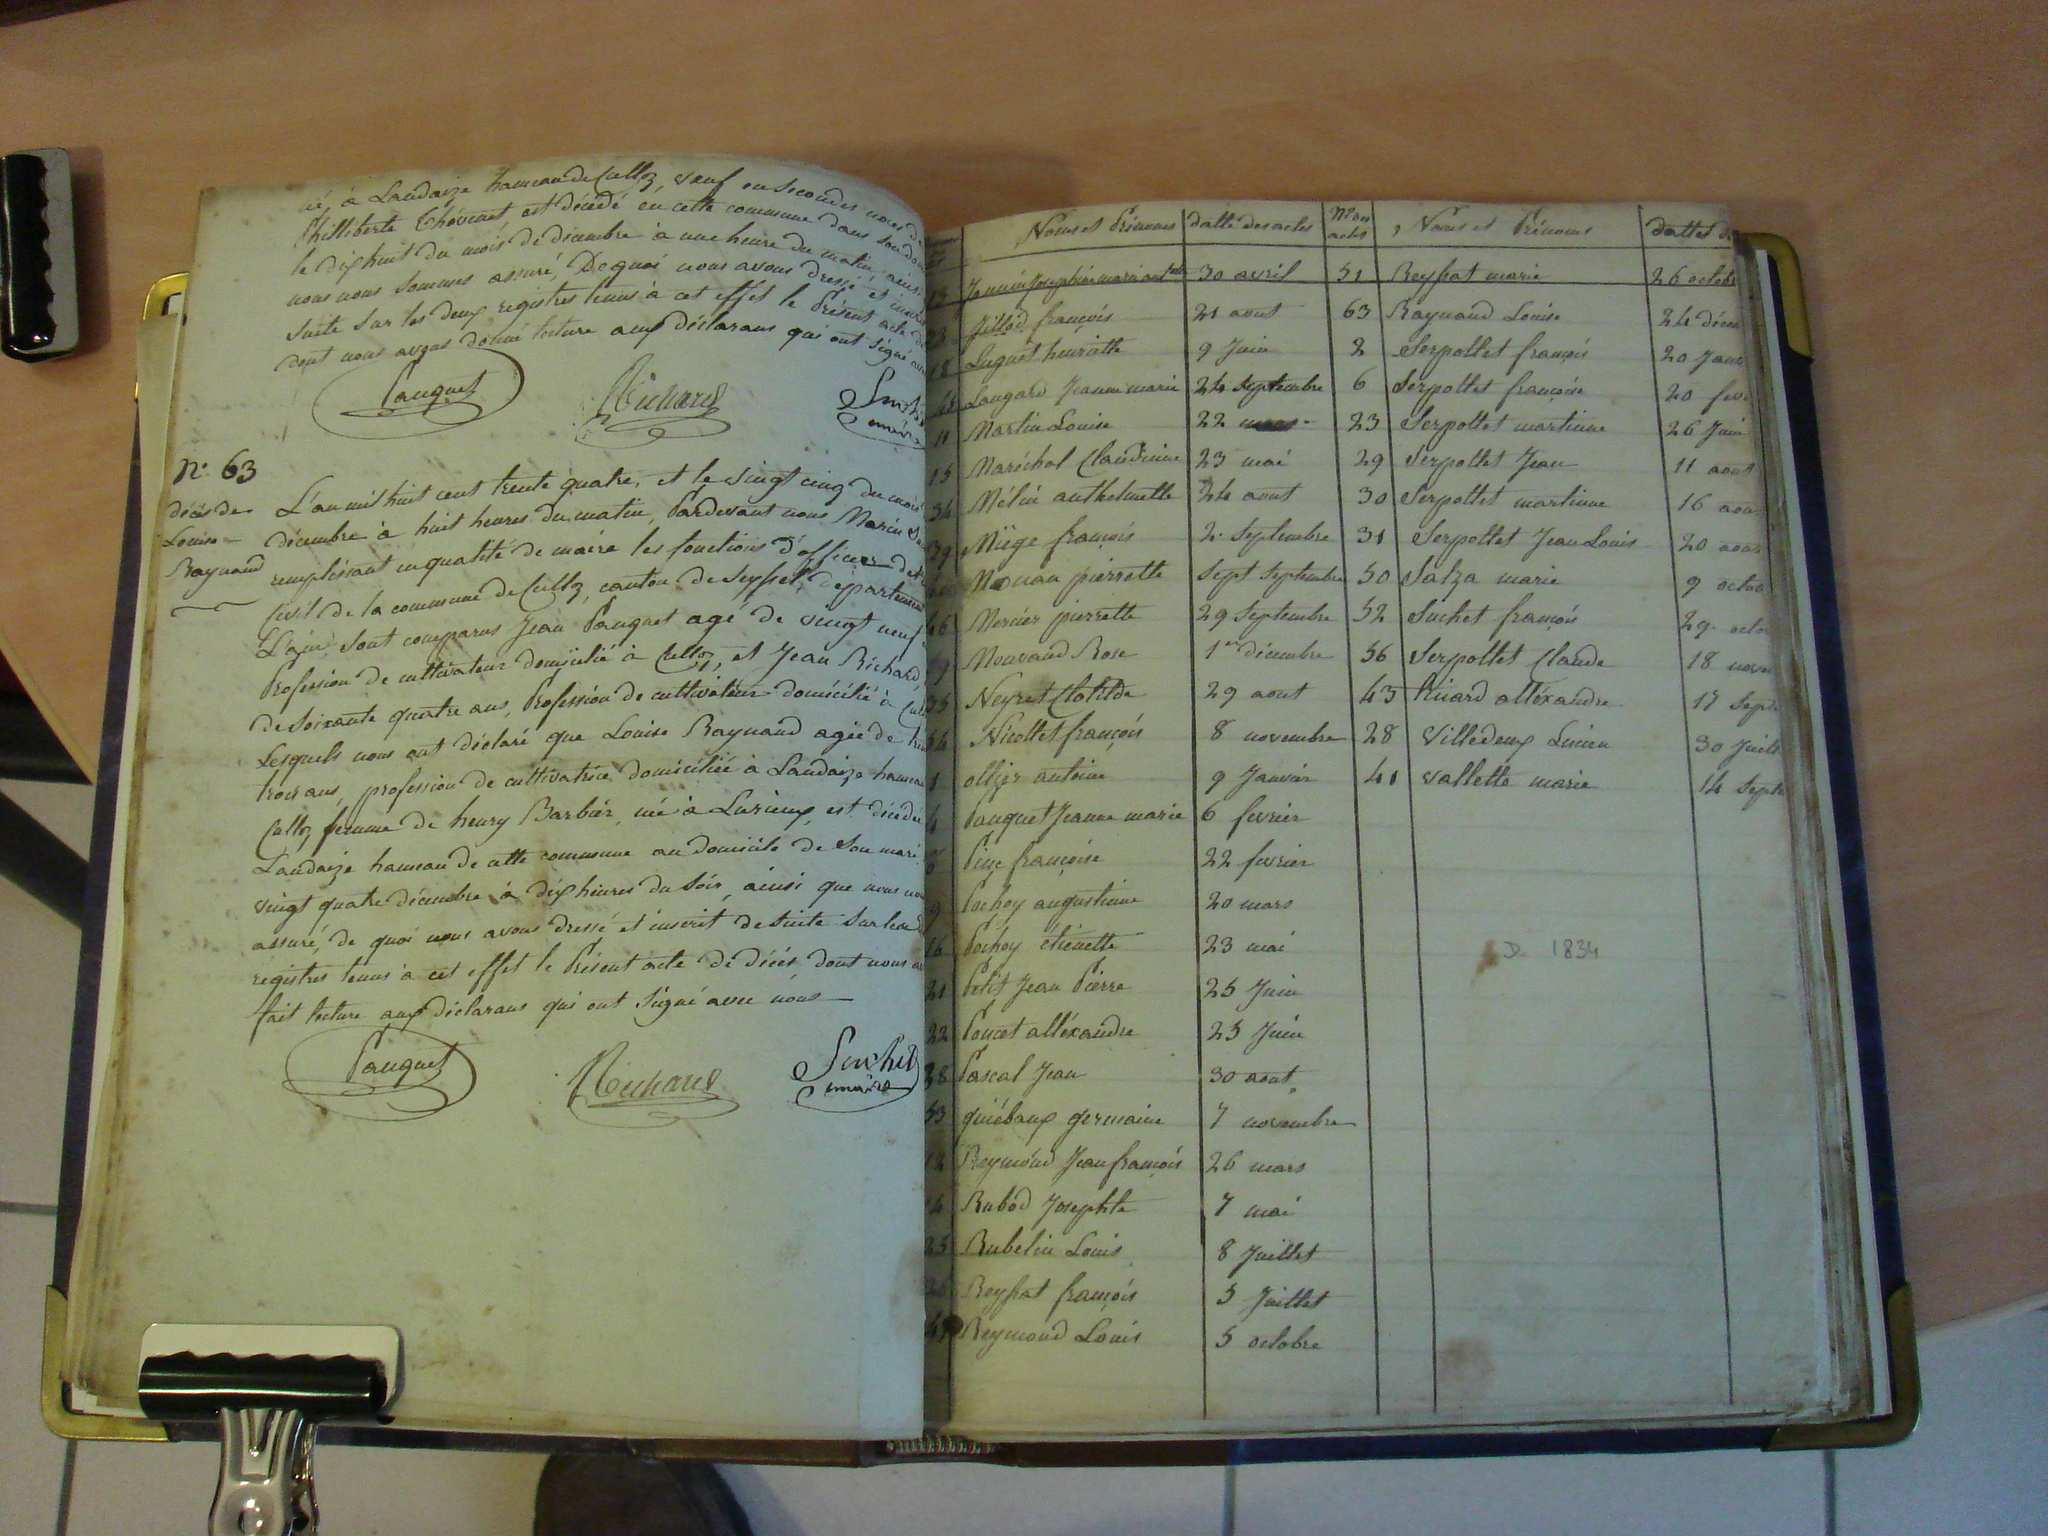 né, à Landaize hameau de Culloz, veuf en secondes noces de
Philliberte Thévenet est décédé en cette commune dans son dom
le dix huit du mois de décembre à une heure du matin, ainsi
nous nous sommes assuré, De quoi nous avons dressé et inscrit
suite sur les deux registres tenus à cet effet le Présent acte de
dont nous avons donné lecture aux déclarans qui ont signé avec
Pauquet
Richard
Suchet
maire
N.° 63
décès de
Louise
Raynaud
L'an mil huit cent trente quatre, et le vingt cinq du mois
décembre à huit heures du matin, Pardevant nous Marin Su
remplissant en qualité de maire les fonctions d'officier de l'
Civil de la commune de Culloz, canton de Seyssel, département
L'ain, sont comparus Jean Pauquet agé de vingt neuf
Profession de cultivateur domicilié à Culloz, et Jean Richard,
de soixante quatre ans, Profession de cultivateur domicilié à Cull
Lesquels nous ont déclaré que Louise Raynaud agée de tren
trois ans, profession de cultivatrice domiciliée à Landaize hameau
Culloz, femme de henry Barbier, née à Lurieux, est décédée
Landaize hameau de cette commune au domicile de Son mari
vingt quatre décembre à dix heures du Soir, ainsi que nous nou
assuré, de quoi nous avons dressé et inscrit de Suite Sur les d
registres tenus à cet effet le Présent acte de décès, dont nous av
fait lecture aux déclarans qui ont Signé avec nous
Pauquet
Richard
Suchet
maire
Noms et Prénoms datte des actes Nos des actes Noms et Prénoms dattes de
Josephine 30 avril 51 Reyssat marie 26 octobr
Jillod françois 21 aout 63 Raynaud Louise 24 décem
18 Luquet henriette 9 Juin 2 Serpollet françois 20 Janv
Laugard Jeanne marie 24 septembre 6 Serpollet françoise 20 fevr
11 Martin Louise 22 mars 23 Serpollet martinne 26 Juin
15 Maréchal Claudinne 23 mai 29 Serpollet Jean 11 aout
34 Mélin anthelmette 24 aout 30 Serpollet martinne 16 aou
39 Miège françois 2. Septembre 31 Serpollet Jean Louis 20 aout
pierrette Sept Septembre 50 Salza marie 9 octob
46 Mercier pierrette 29 Septembre 52 Suchet françois 29. octo
Rose 1er décembre 56 Serpollet Claude 18 nove
35 Neyret Clotilde 29 aout 43 alléxandre 17 Sept
54 Nicollet françois 8 novembre 28 Villedeux Lucien 30 Juill
1 ollier antoine 9 Janvier 41 Vallette marie 14 Septe
4 Pauquet Jeanne marie 6 fevrier
françoise 22 fevrier
9 Pochoy augustinne 20 mars
16 Pochoy étienette 23 mai
21 Petit Jean Pierre 25 Juin
22 Poncet alléxandre 25 Juin
38 Pascal Jean 30 aout
53 quinébaux germaine 7 novembre
12 Reymond Jean françois 26 mars
14 Rubod Josephte 7 mai
25 Rubelin Louis 8 Juillet
Reyssat françois 5 Juillet
Reymond Louis 5 octobre
D. 1834